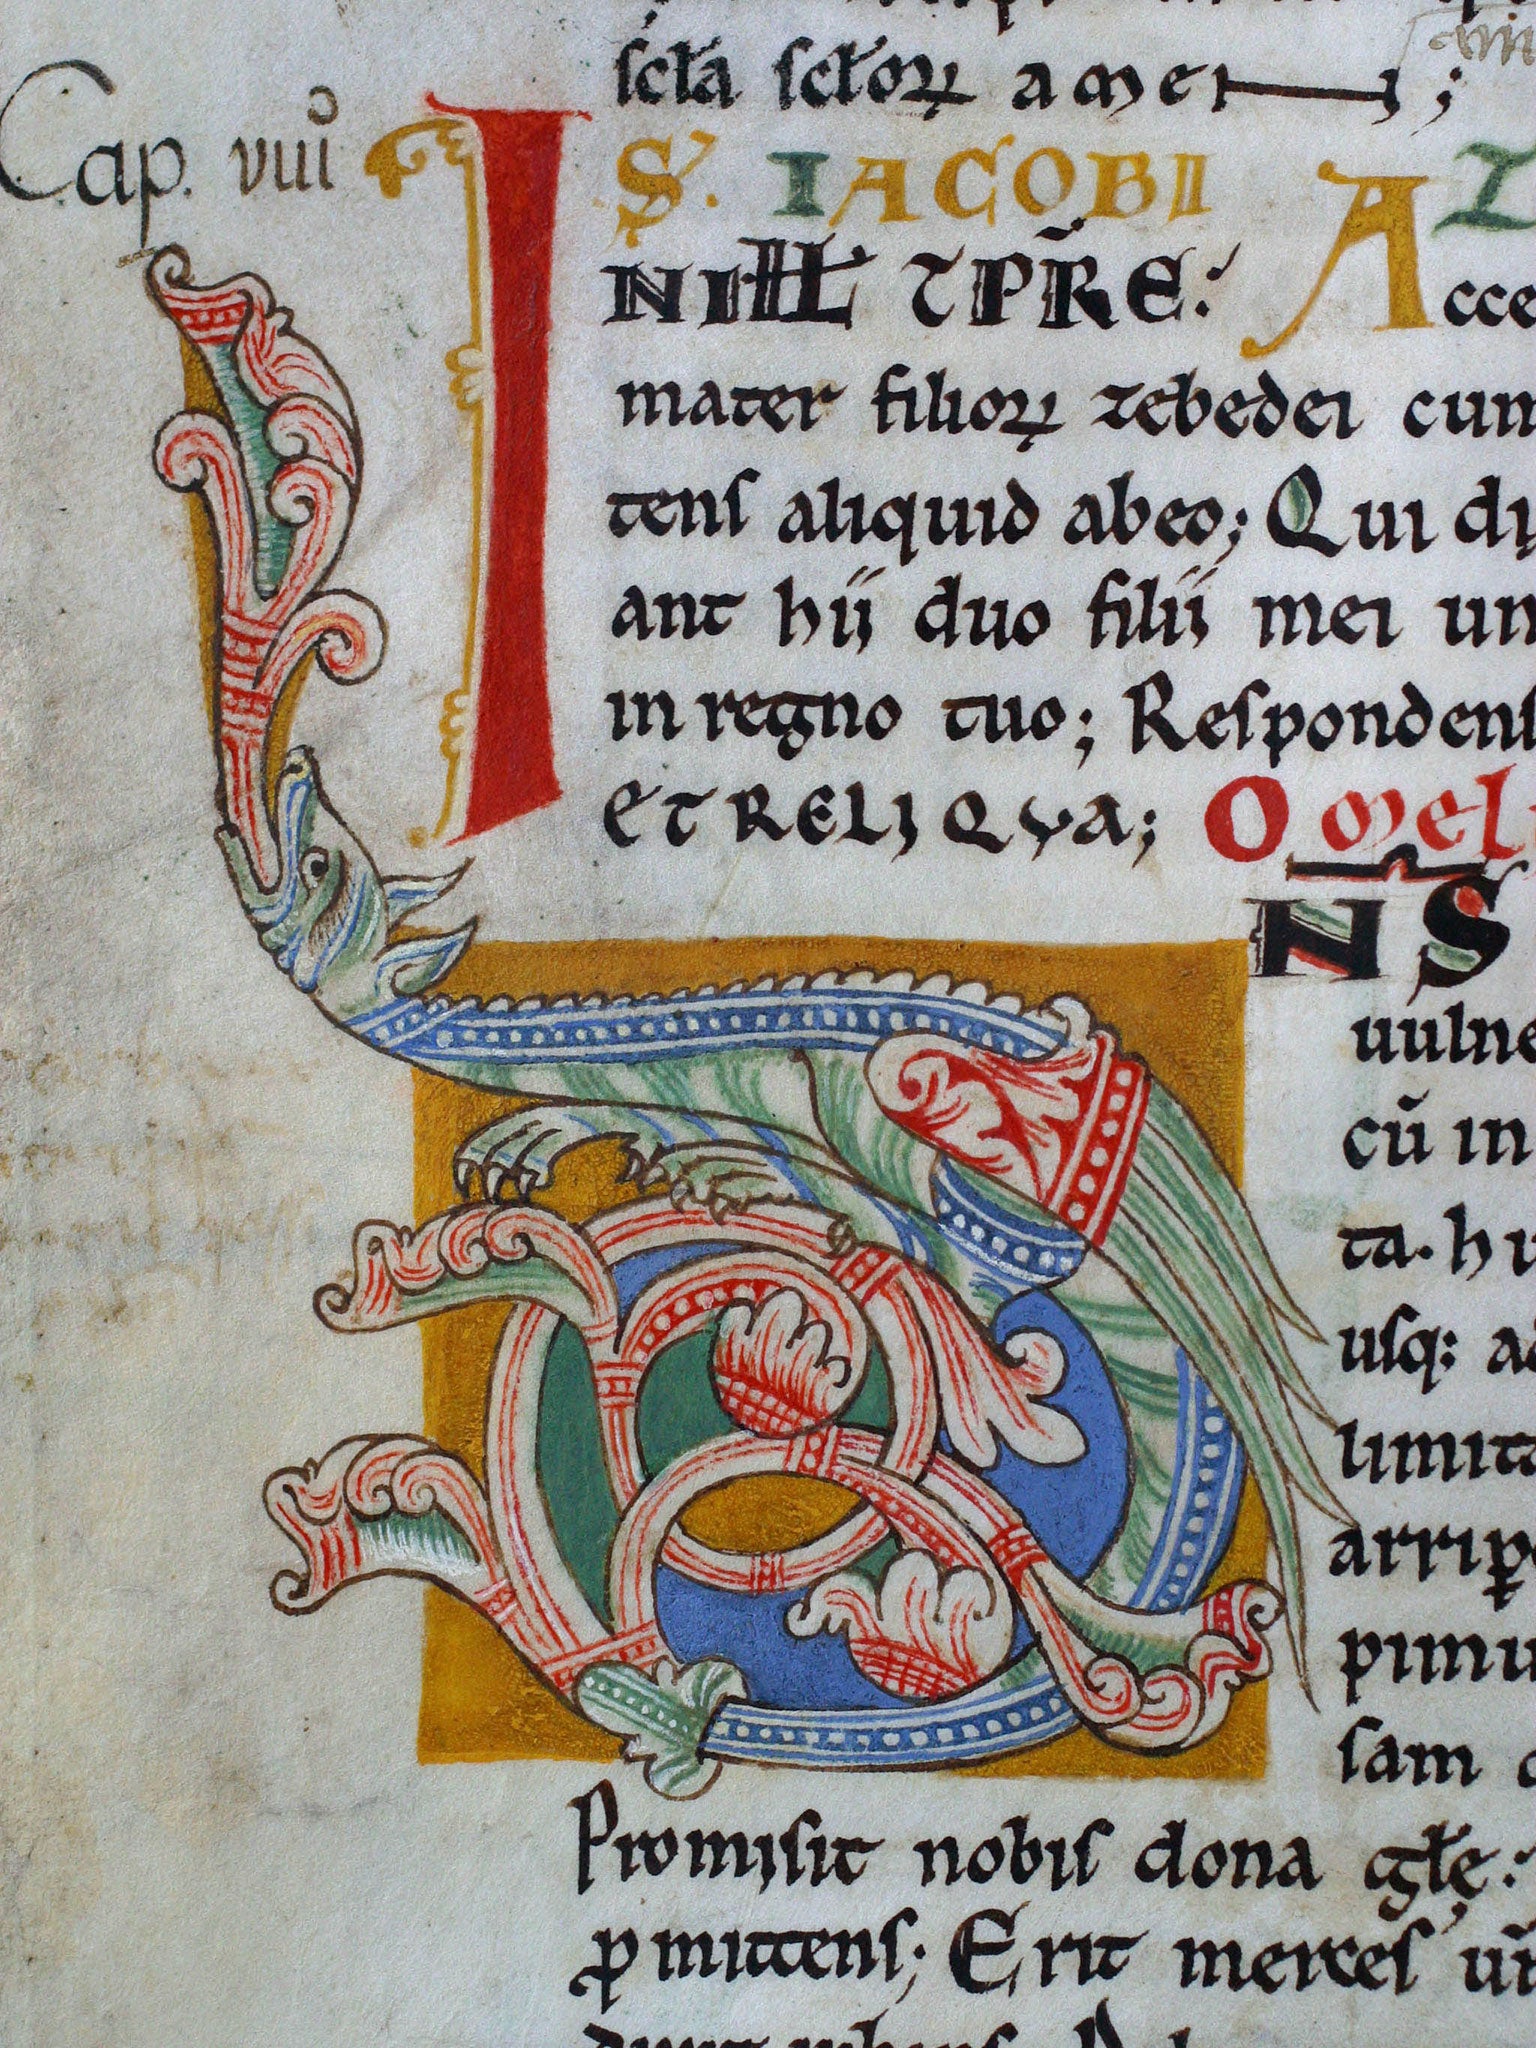 scła scłoꝝ amen;
Cap. viii
I S. IACOBI AL
IN ILL TPR̄E: Acce
mater filioꝝ zebedei cum
tens aliquid abeo; Qui
ant hii duo filii mei un
in regno tuo; Respondens
ET RELIQVA; Omel
NS
uulne
cū in
ta. hu
usq: ad
limita
arripe
pimu
sam
Promisit nobis dona głę:
ꝓmittens; Erit merces ur̄